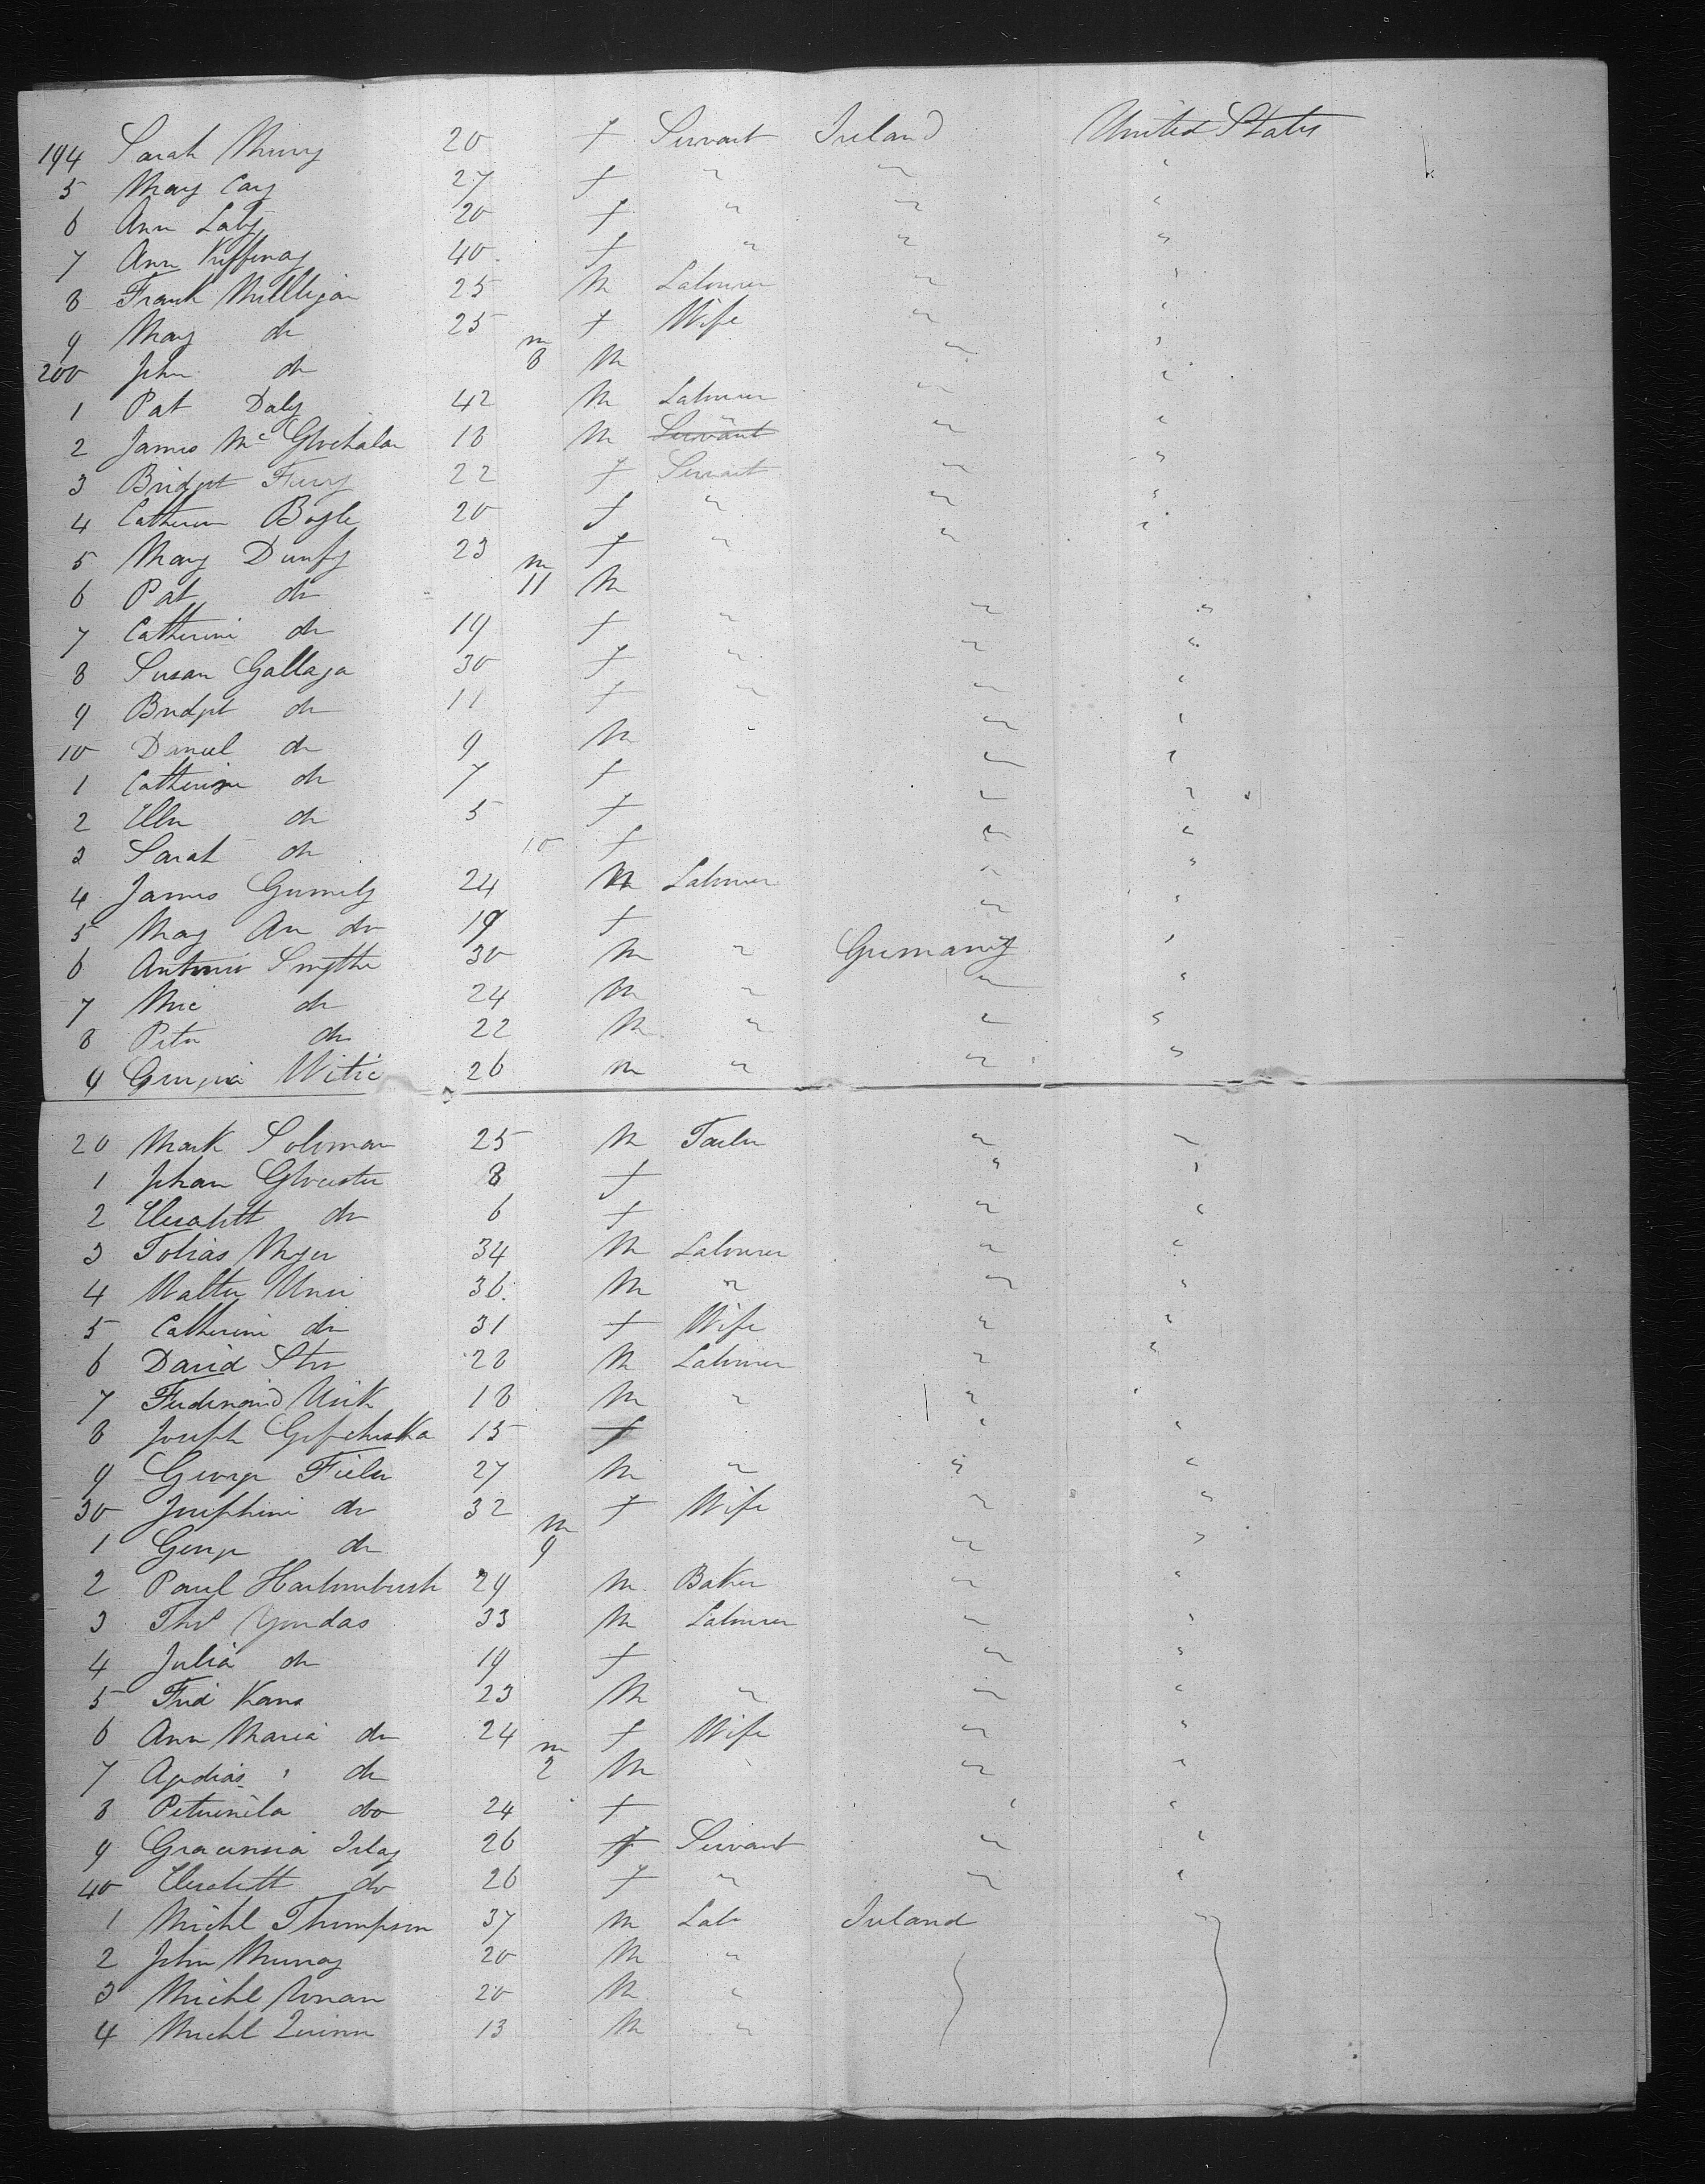 194 Sarah 20 f Servant Ireland United States
5 Mary Cary 27 f " " "
6 Ann 20 f " " "
7 Ann 40 f " " "
8 Frank Mulligan 25 M Labourer " "
9 Mary do 25 f Wife " "
200 John do m 8 M " "
1 Pat Daly 42 M Labourer " "
2 James Mc 18 M Servant " " "
3 Bridget Fury 22 f Servant " "
4 Catherin Bogle 20 f " " "
5 Mary Dunfy 23 f " " "
6 Pat do m 11 M
7 Catherine do 19 f " " "
8 Susan Gallaga 30 f " " "
9 Bridget do 11 f " " "
10 Daniel do 9 M " " "
1 Catherine do 7 f " "
2 Ellen do 5 f " "
3 Sarah do 10 f " "
4 James 24 M Labourer " "
5 Mary An do 19 f " "
6 Antonio Smythe 30 M " Germany "
7 Mic do 24 M " " "
8 Peter do 22 M " " "
9 Witic 26 m " " "
20 Mark Soloman 25 M Tailor " "
1 Johan Gloester 8 f " "
2 Elesabett do 6 f " "
3 Tobias Myer 34 M Labourer " "
4 Walter 36 M " " "
5 Catherine do 31 f Wife " "
6 David 28 M Labourer " "
7 Ferdenand 18 M " " "
8 Joseph 15 f " "
9 George 27 M " " "
30 Josephine do 32 f Wife " "
1 George do m 9 " "
2 Paul 29 M Baker " "
3 Thos 33 M Labourer " "
4 Julia do 19 f " "
5 Fred Kans 23 M " " "
6 Ann Maria do 24 f Wife " "
7 do m 2 M " " "
8 do 24 f " "
9 26 f Servant " "
40 Elesabett do 26 f " " "
1 Michl Thompson 37 M Lab Ireland "
2 John Murray 20 M "
3 Michl 20 M "
4 Michl Quinn 13 M "